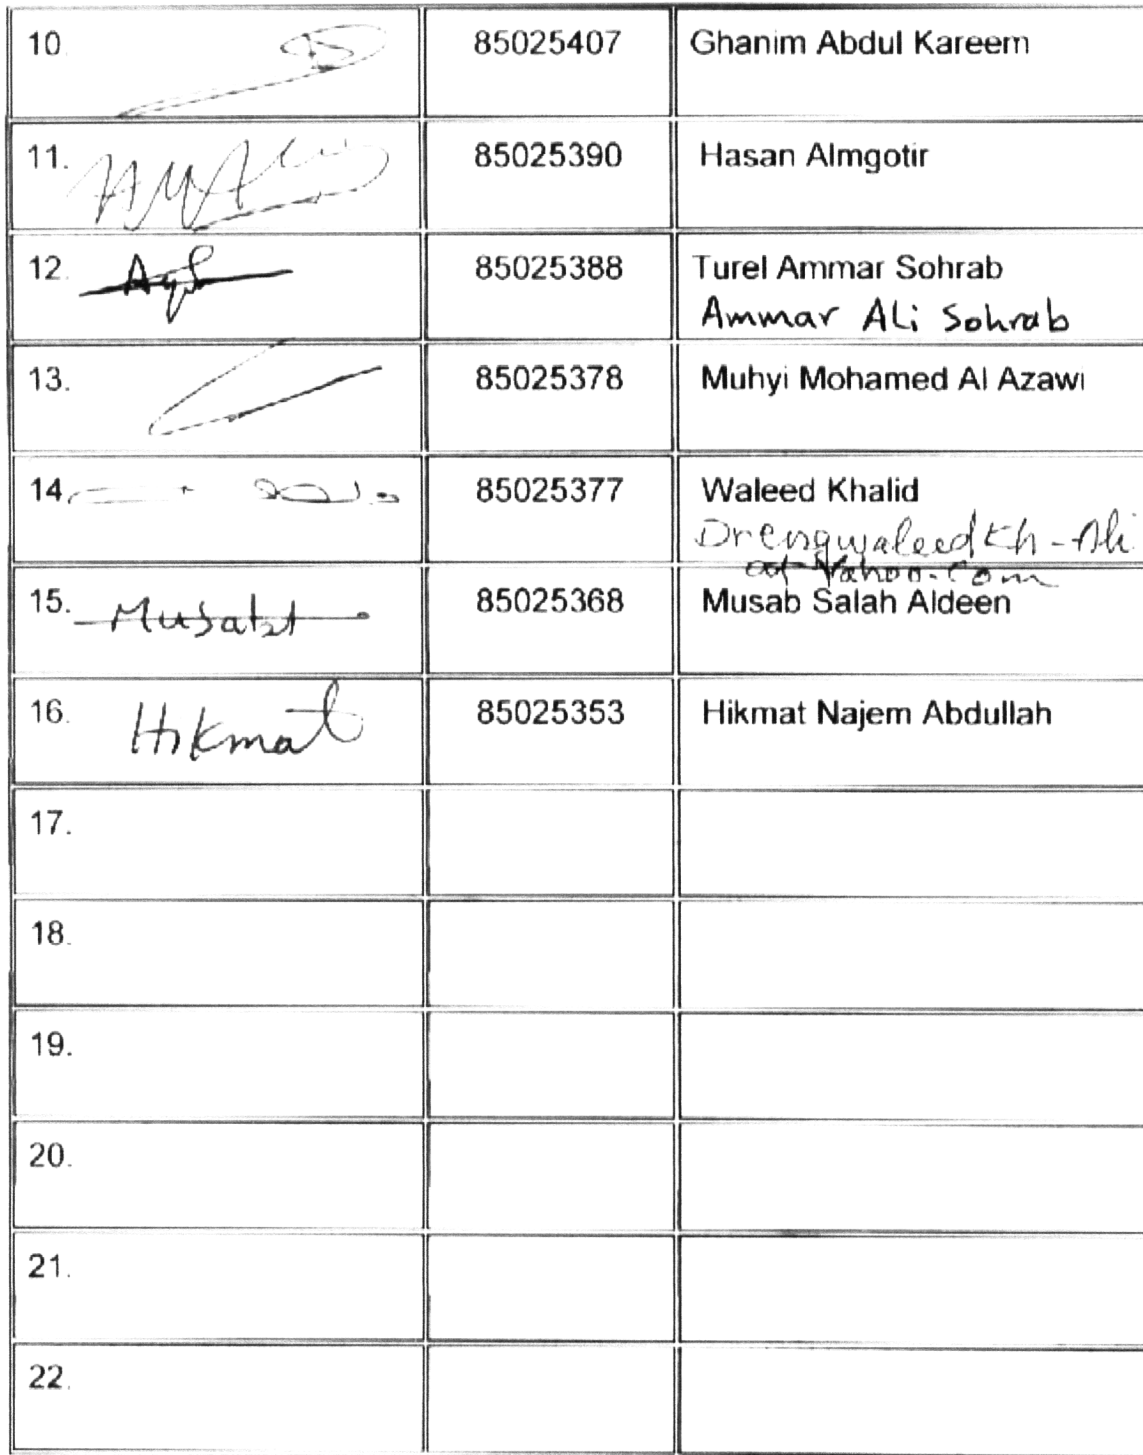 10. 85025407 Ghanim Abdul Kareem
11. 85025390 Hasan Almgotir
12. 85025388 Turel Ammar Sohrab
Ammar Ali Sohrab
13. 85025378 Muhyi Mohamed Al Azawi
14. 85025377 Waleed Khalid
DrengwaleedKh-Ali
at Yahoo.com
15. 85025368 Musab Salah Aldeen
16. Hikmat 85025353 Hikmat Najem Abdullah
17.
18.
19.
20.
21.
22.